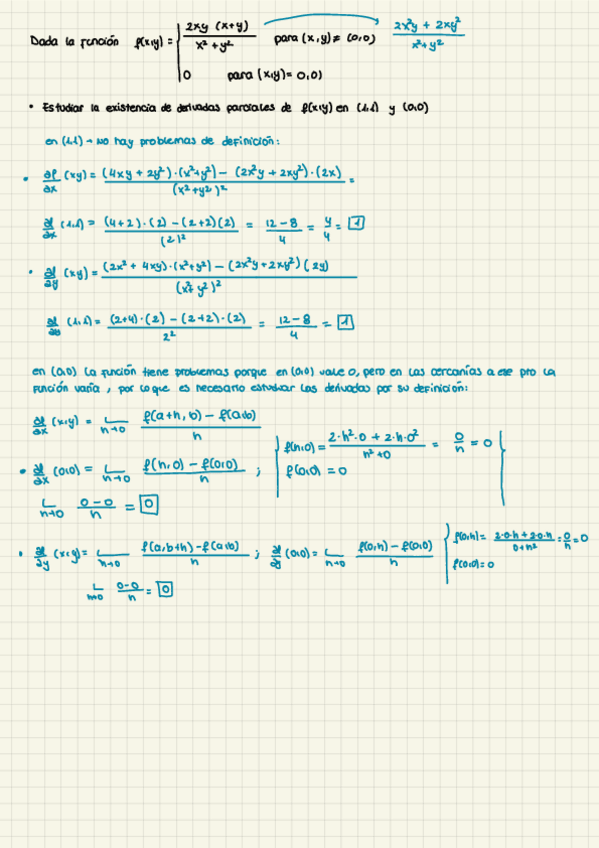 Dada la función f(x,y) = { 2xy (x+y) / x² + y² para (x,y) ≠ (0,0) 2x²y + 2xy² / x² + y²
0 para (x,y) = 0,0)
• Estudiar la existencia de derivadas parciales de f(x,y) en (1,1) y (0,0)
en (1,1) → No hay problemas de definición:
• ∂f/∂x (x,y) = (4xy + 2y²)·(x²+y²) − (2x²y + 2xy²)·(2x) / (x²+y²)² =
∂f/∂x (1,1) = (4+2)·(2) − (2+2)(2) / (2)² = 12−8 / 4 = 4/4 = 1
• ∂f/∂y (x,y) = (2x² + 4xy)·(x²+y²) − (2x²y + 2xy²)(2y) / (x²+y²)²
∂f/∂y (1,1) = (2+4)·(2) − (2+2)·(2) / 2² = 12−8 / 4 = 1
en (0,0) la función tiene problemas porque en (0,0) vale 0, pero en las cercanías a ese pto la
función varía, por lo que es necesario estudiar las derivadas por su definición:
∂f/∂x (x,y) = L h→0 f(a+h, b) − f(a,b) / h
• ∂f/∂x (0,0) = L h→0 f(h,0) − f(0,0) / h ; { f(h,0) = 2·h²·0 + 2·h·0² / h²+0 = 0/h = 0
f(0,0) = 0
L h→0 0−0 / h = 0
• ∂f/∂y (x,y) = L h→0 f(a,b+h) − f(a,b) / h ; ∂f/∂y (0,0) = L h→0 f(0,h) − f(0,0) / h { f(0,h) = 2·0·h + 2·0·h / 0+h² = 0/h = 0
f(0,0) = 0
L h→0 0−0 / h = 0